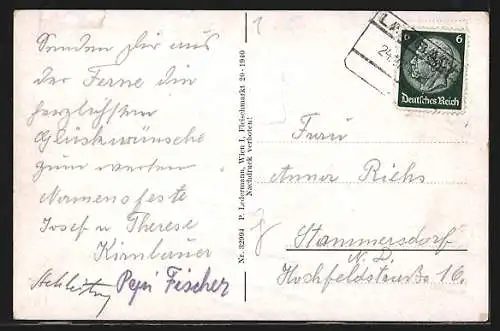 Senden Dir aus
der Ferne die
herzlichsten
Glückwünsche
zum werten
Namensfeste
Josef u. Therese
Kirnbauer
Pepi Fischer
Nr. 32994 P. Ledermann, Wien I, Fleischmarkt 20 - 1940
Nachdruck verboten!
6 6
Deutsches Reich
24.
Frau
Anna Riehs
Stammersdorf
N. D.
Hochfeldstraße 16.